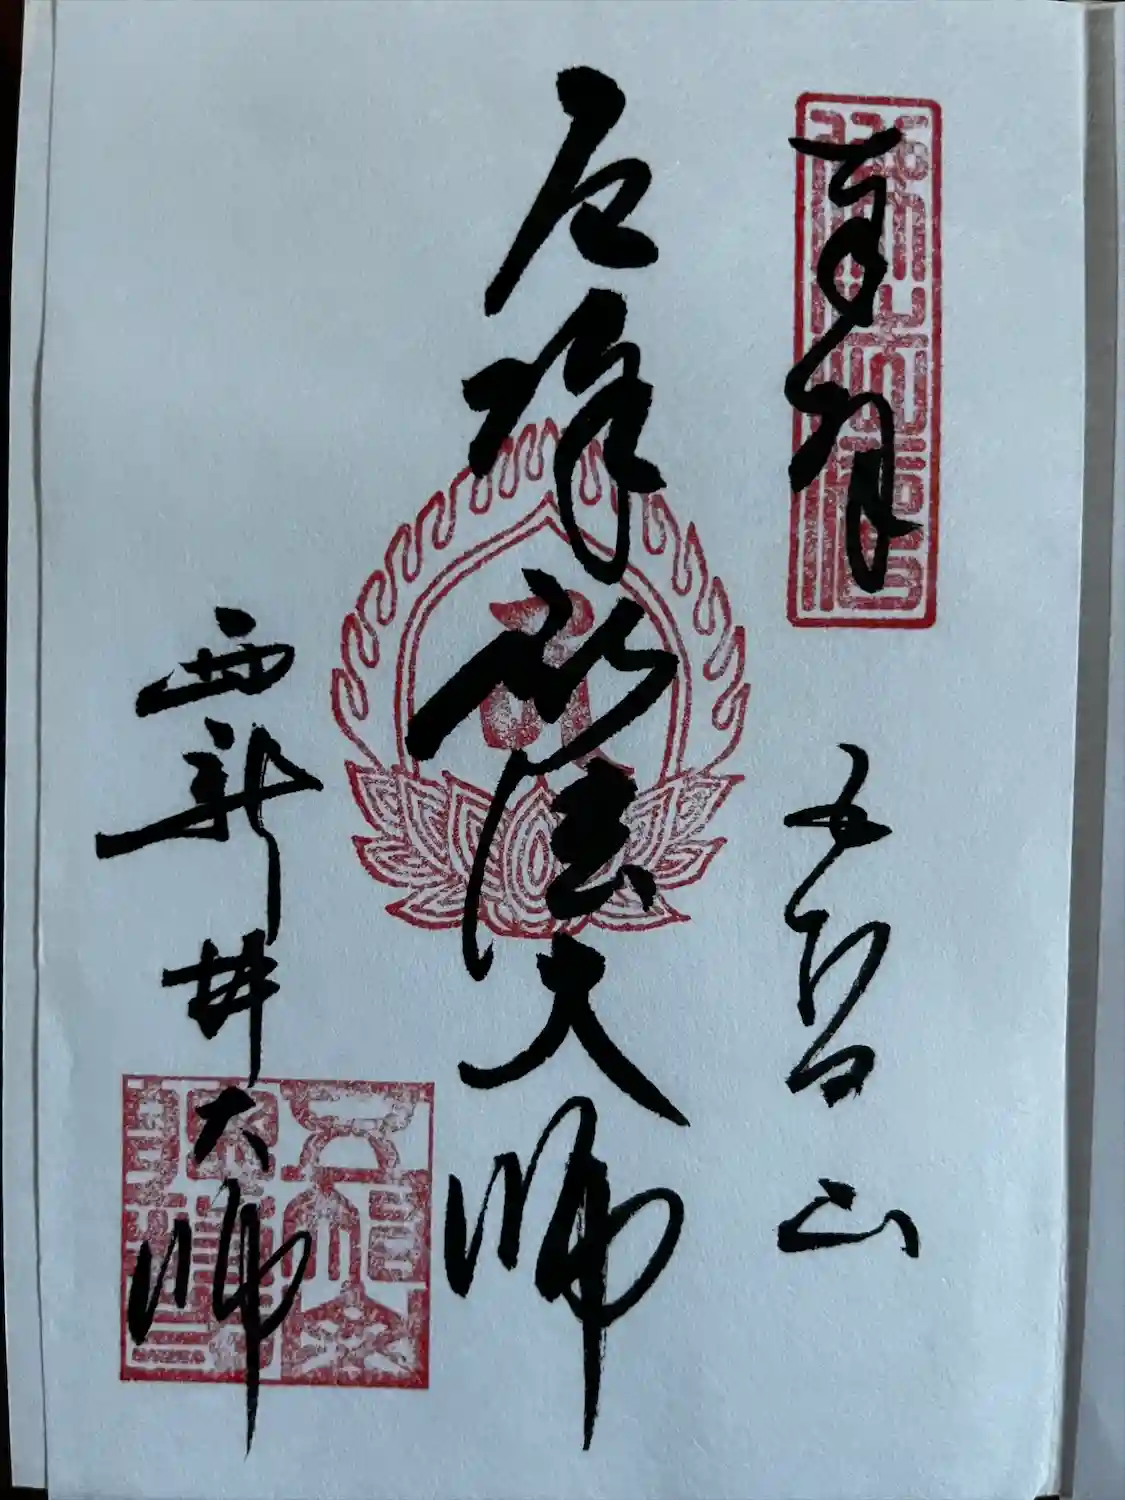 奉拝 五智山
厄除弘法大師
西新井大師